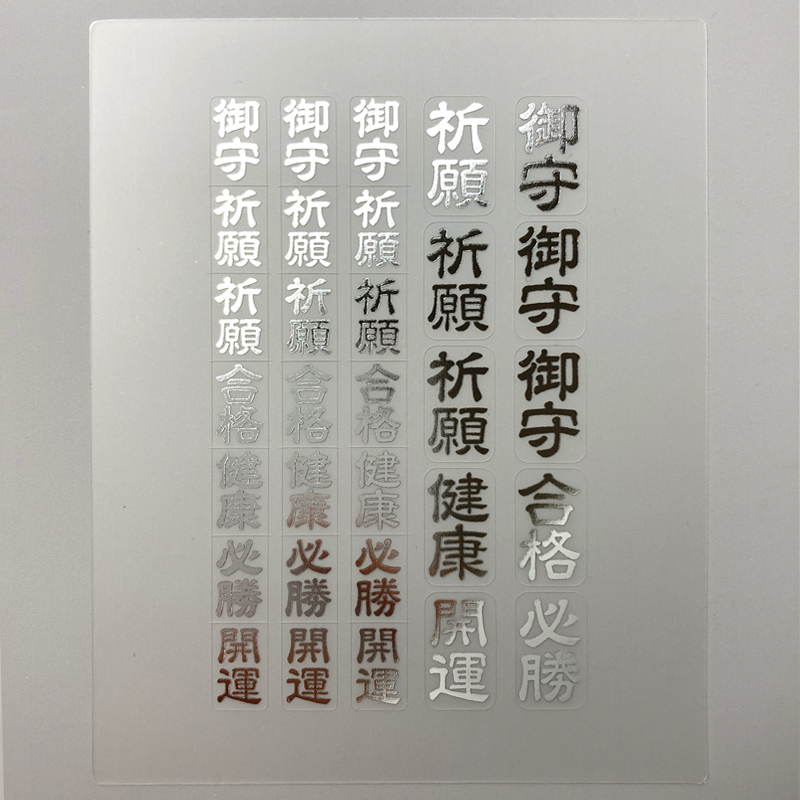 御守
祈願
祈願
合格
健康
必勝
開運
御守
祈願
祈願
合格
健康
必勝
開運
御守
祈願
祈願
合格
健康
必勝
開運
祈願
祈願
祈願
健康
開運
御守
御守
御守
合格
必勝